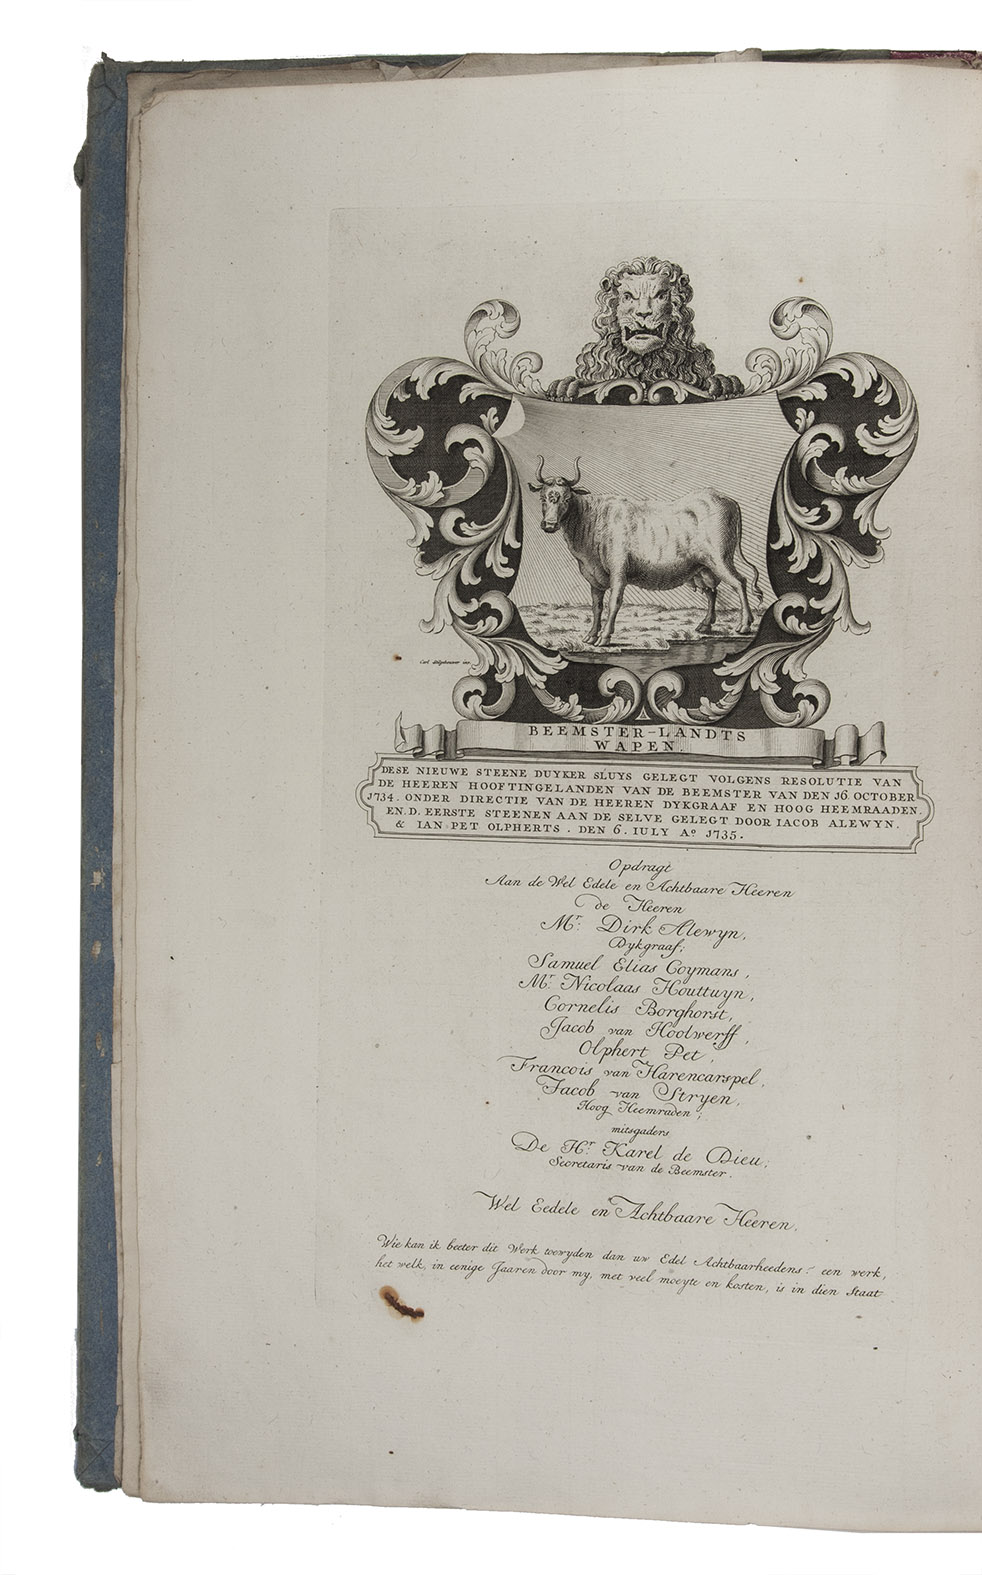 BEEMSTER-LANDTS
WAPEN.
DESE NIEUWE STEENE DUYKER SLUYS GELEGT VOLGENS RESOLUTIE VAN
DE HEEREN HOOFTINGELANDEN VAN DE BEEMSTER VAN DEN 16. OCTOBER
1734. ONDER DIRECTIE VAN DE HEEREN DYKGRAAF EN HOOG HEEMRAADEN.
EN.D. EERSTE STEENEN AAN DE SELVE GELEGT DOOR IACOB ALEWYN.
& IAN PET OLPHERTS. DEN 6. IULY Aº 1735.
Opdragt
Aan de Wel Edele en Achtbaare Heeren
de Heeren
Mr. Dirk Alewyn,
Dykgraaf;
Samuel Elias Coymans,
Mr. Nicolaas Houttuyn,
Cornelis Borghorst,
Jacob van Hoolwerff,
Olphert Pet,
Francois van Harencarspel,
Jacob van Stryen,
Hoog Heemraden;
mitsgaders
De Hr. Karel de Dieu;
Secretaris van de Beemster.
Wel Eedele en Achtbaare Heeren.
Wie kan ik beeter dit Werk toewyden dan uw Edel Achtbaarheedens? een werk,
het welk, in eenige Jaaren door my, met veel moeyte en kosten, is in dien Staat